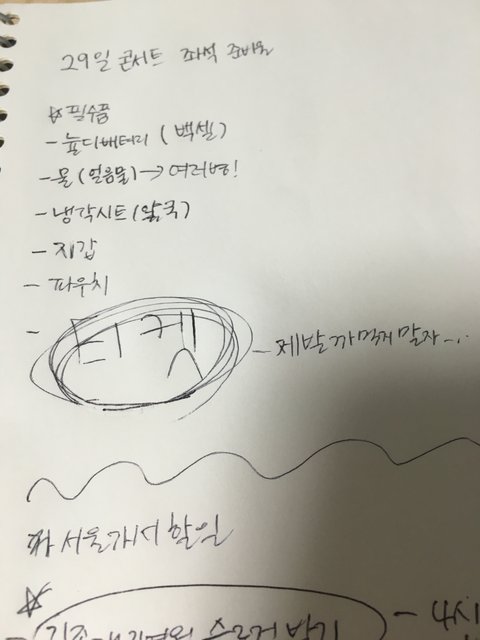 29일 콘서트 좌석 준비물
☆필수품
- 눌디배터리 (빽셀)
- 물 (얼음물) → 여러병!
- 냉각시트
- 지갑
- 파우치
- 티켓 - 제발까먹지말자...
서울가서 할일
☆